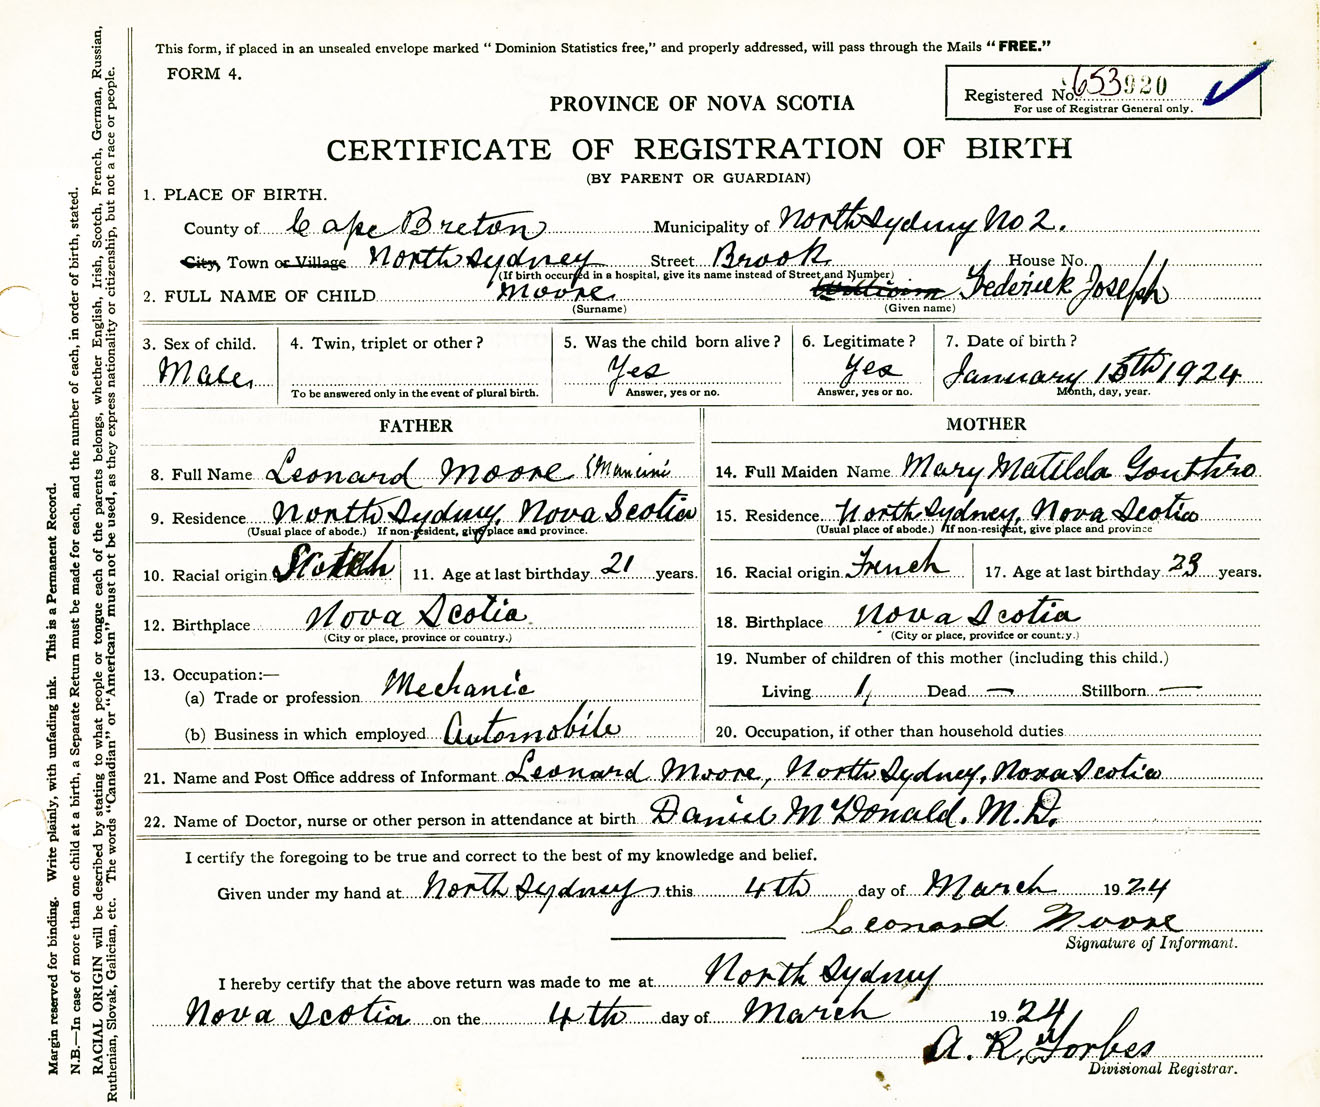 This form, if placed in an unsealed envelope marked "Dominion Statistics free," and properly addressed, will pass through the Mails "FREE."
FORM 4.
Registered No. 653920
For use of Registrar General only.
PROVINCE OF NOVA SCOTIA
CERTIFICATE OF REGISTRATION OF BIRTH
(BY PARENT OR GUARDIAN)
1. PLACE OF BIRTH.
County of Cape Breton Municipality of North Sydney No 2.
City, Town or Village North Sydney Street Brook House No.
(If birth occurred in a hospital, give its name instead of Street and Number)
2. FULL NAME OF CHILD Moore William Frederick Joseph
(Surname) (Given name)
3. Sex of child. 4. Twin, triplet or other? 5. Was the child born alive? 6. Legitimate? 7. Date of birth?
Male, Yes Yes January 15th 1924
To be answered only in the event of plural birth. Answer, yes or no. Answer, yes or no. Month, day, year.
FATHER MOTHER
8. Full Name Leonard Moore (Mancini 14. Full Maiden Name Mary Matilda Gouthro
9. Residence North Sydney, Nova Scotia 15. Residence North Sydney, Nova Scotia
(Usual place of abode.) If non-resident, give place and province. (Usual place of abode.) If non-resident, give place and province
10. Racial origin Scotch 11. Age at last birthday 21 years. 16. Racial origin French 17. Age at last birthday 23 years.
12. Birthplace Nova Scotia 18. Birthplace Nova Scotia
(City or place, province or country.) (City or place, province or country.)
13. Occupation:— 19. Number of children of this mother (including this child.)
(a) Trade or profession Mechanic Living 1, Dead — Stillborn —
(b) Business in which employed Automobile 20. Occupation, if other than household duties
21. Name and Post Office address of Informant Leonard Moore, North Sydney, Nova Scotia
22. Name of Doctor, nurse or other person in attendance at birth Daniel McDonald. M.D.
I certify the foregoing to be true and correct to the best of my knowledge and belief.
Given under my hand at North Sydney this 4th day of March 1924
Leonard Moore
Signature of Informant.
I hereby certify that the above return was made to me at North Sydney
Nova Scotia on the 4th day of March 1924
A. R. Forbes
Divisional Registrar.
Margin reserved for binding. Write plainly, with unfading ink. This is a Permanent Record.
N.B.—In case of more than one child at a birth, a Separate Return must be made for each, and the number of each, in order of birth, stated.
RACIAL ORIGIN will be described by stating to what people or tongue each of the parents belongs, whether English, Irish, Scotch, French, German, Russian,
Ruthenian, Slovak, Galician, etc. The words "Canadian" or "American" must not be used, as they express nationality or citizenship, but not a race or people.